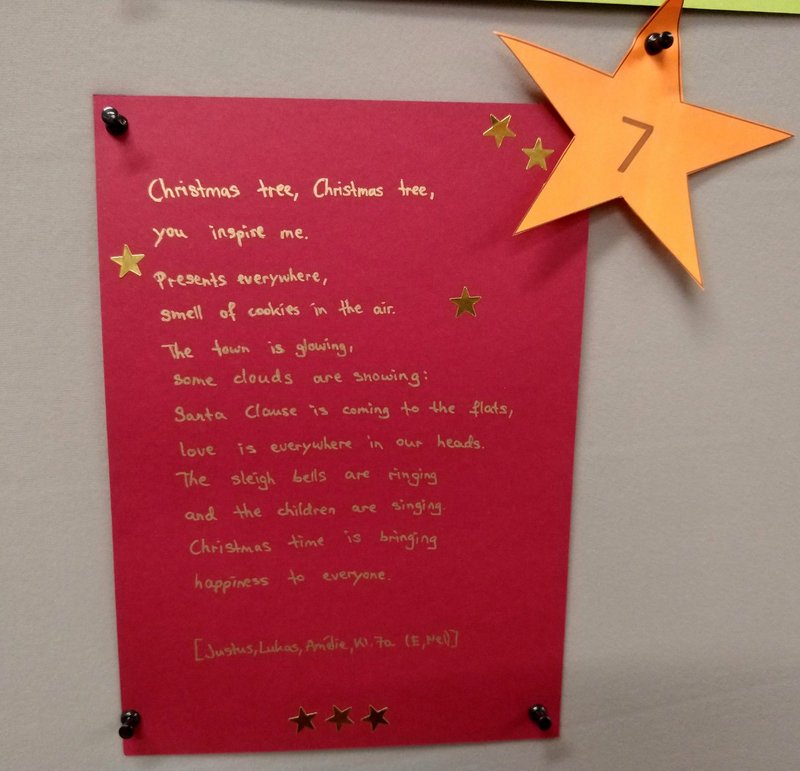 7
Christmas tree, Christmas tree,
you inspire me.
Presents everywhere,
smell of cookies in the air.
The town is glowing,
some clouds are snowing:
Santa Clause is coming to the flats,
love is everywhere in our heads.
The sleigh bells are ringing
and the children are singing.
Christmas time is bringing
happiness to everyone.
[Justus, Lukas, Amélie, Kl. 7a (E, Nel)]